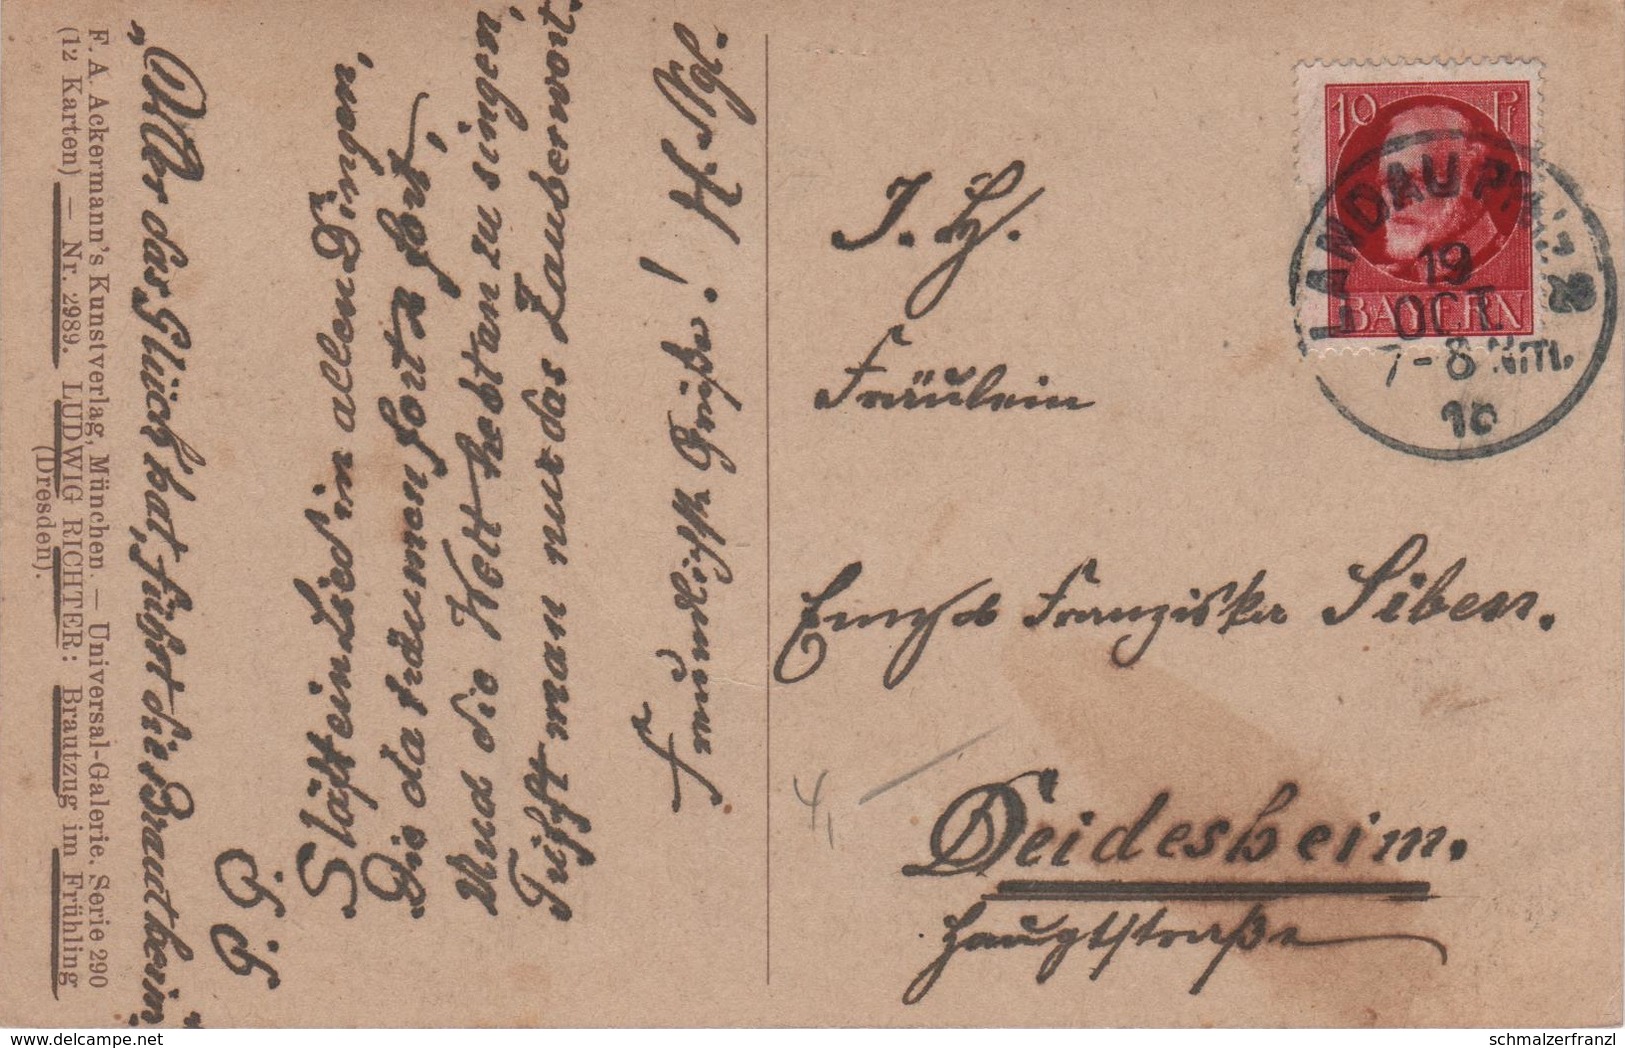 F. A. Ackermann's Kunstverlag, München. — Universal-Galerie. Serie 290
(12 Karten) — Nr. 2989. LUDWIG RICHTER: Brautzug im Frühling
(Dresden).
„Wer das Glück hat, führt die Braut heim"
Schläft ein Lied in allen Dingen,
Die da träumen fort u fort,
Und die Welt hebt an zu singen,
Triffst man nur das Zauberwort.
Freundlichste Grüße!
10 Pf
BAYERN
LANDAU PFALZ
19
OCT.
7-8 Nm.
16
Fräulein
Franziska Siben.
Deidesheim.
Hauptstraße
schmalzerfranzl